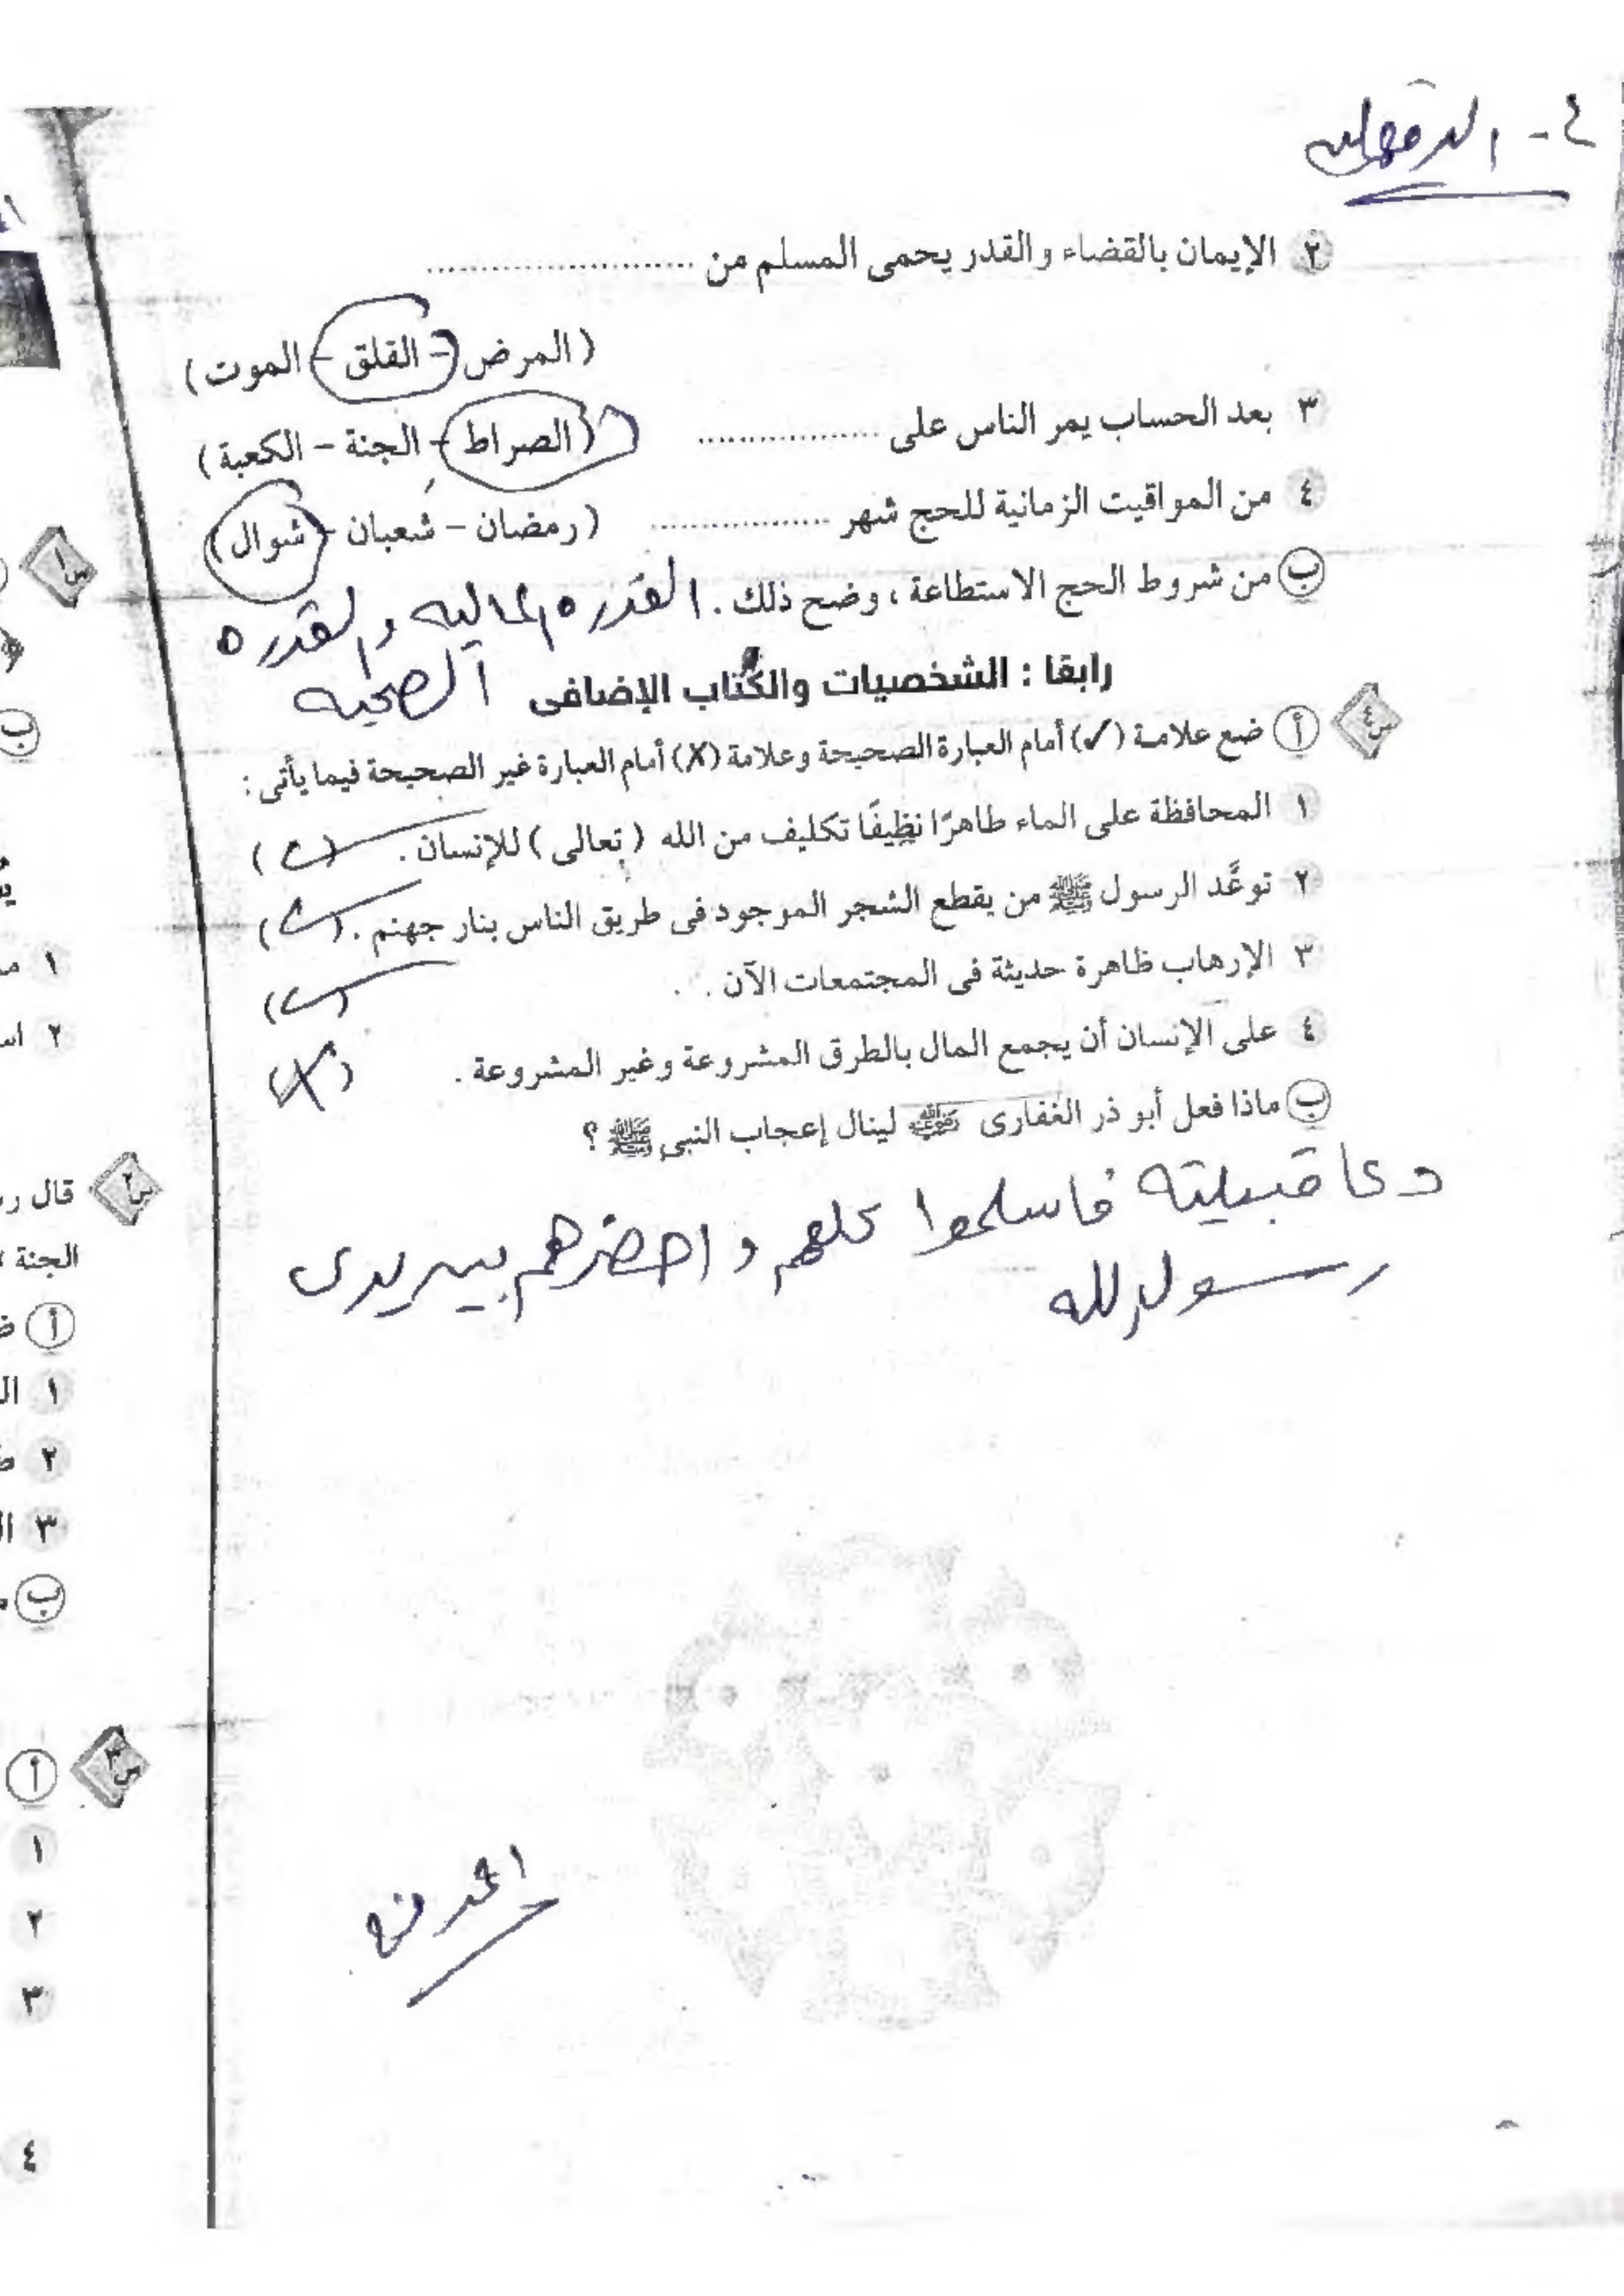 ٤- الدقهلية
٢ الإيمان بالقضاء والقدر يحمى المسلم من ........................
( المرض - القلق - الموت )
٣ بعد الحساب يمر الناس على .................. ( الصراط - الجنة - الكعبة )
٤ من المواقيت الزمانية للحج شهر .................. ( رمضان - شعبان - شوال )
ب من شروط الحج الاستطاعة ، وضح ذلك . القدره الماليه والقدره
الصحيه
رابعًا : الشخصيات والكتاب الإضافى
س٤ أ ضع علامة (✓) أمام العبارة الصحيحة وعلامة (X) أمام العبارة غير الصحيحة فيما يأتى :
١ المحافظة على الماء طاهرًا نظيفًا تكليف من الله ( تعالى ) للإنسان . (✓)
٢ توعَّد الرسول ﷺ من يقطع الشجر الموجود فى طريق الناس بنار جهنم . (✓)
٣ الإرهاب ظاهرة حديثة فى المجتمعات الآن . (✓)
٤ على الإنسان أن يجمع المال بالطرق المشروعة وغير المشروعة . (X)
ب ماذا فعل أبو ذر الغفارى رضي الله عنه لينال إعجاب النبى ﷺ ؟
دعا قبيلته فاسلموا كلهم واحضرهم بين يدى
رسول الله
س١
ب
١
٢
س٢ قال
الجنة
أ
١
٢
٣
ب
س٣ أ
١
٢
٣
٤